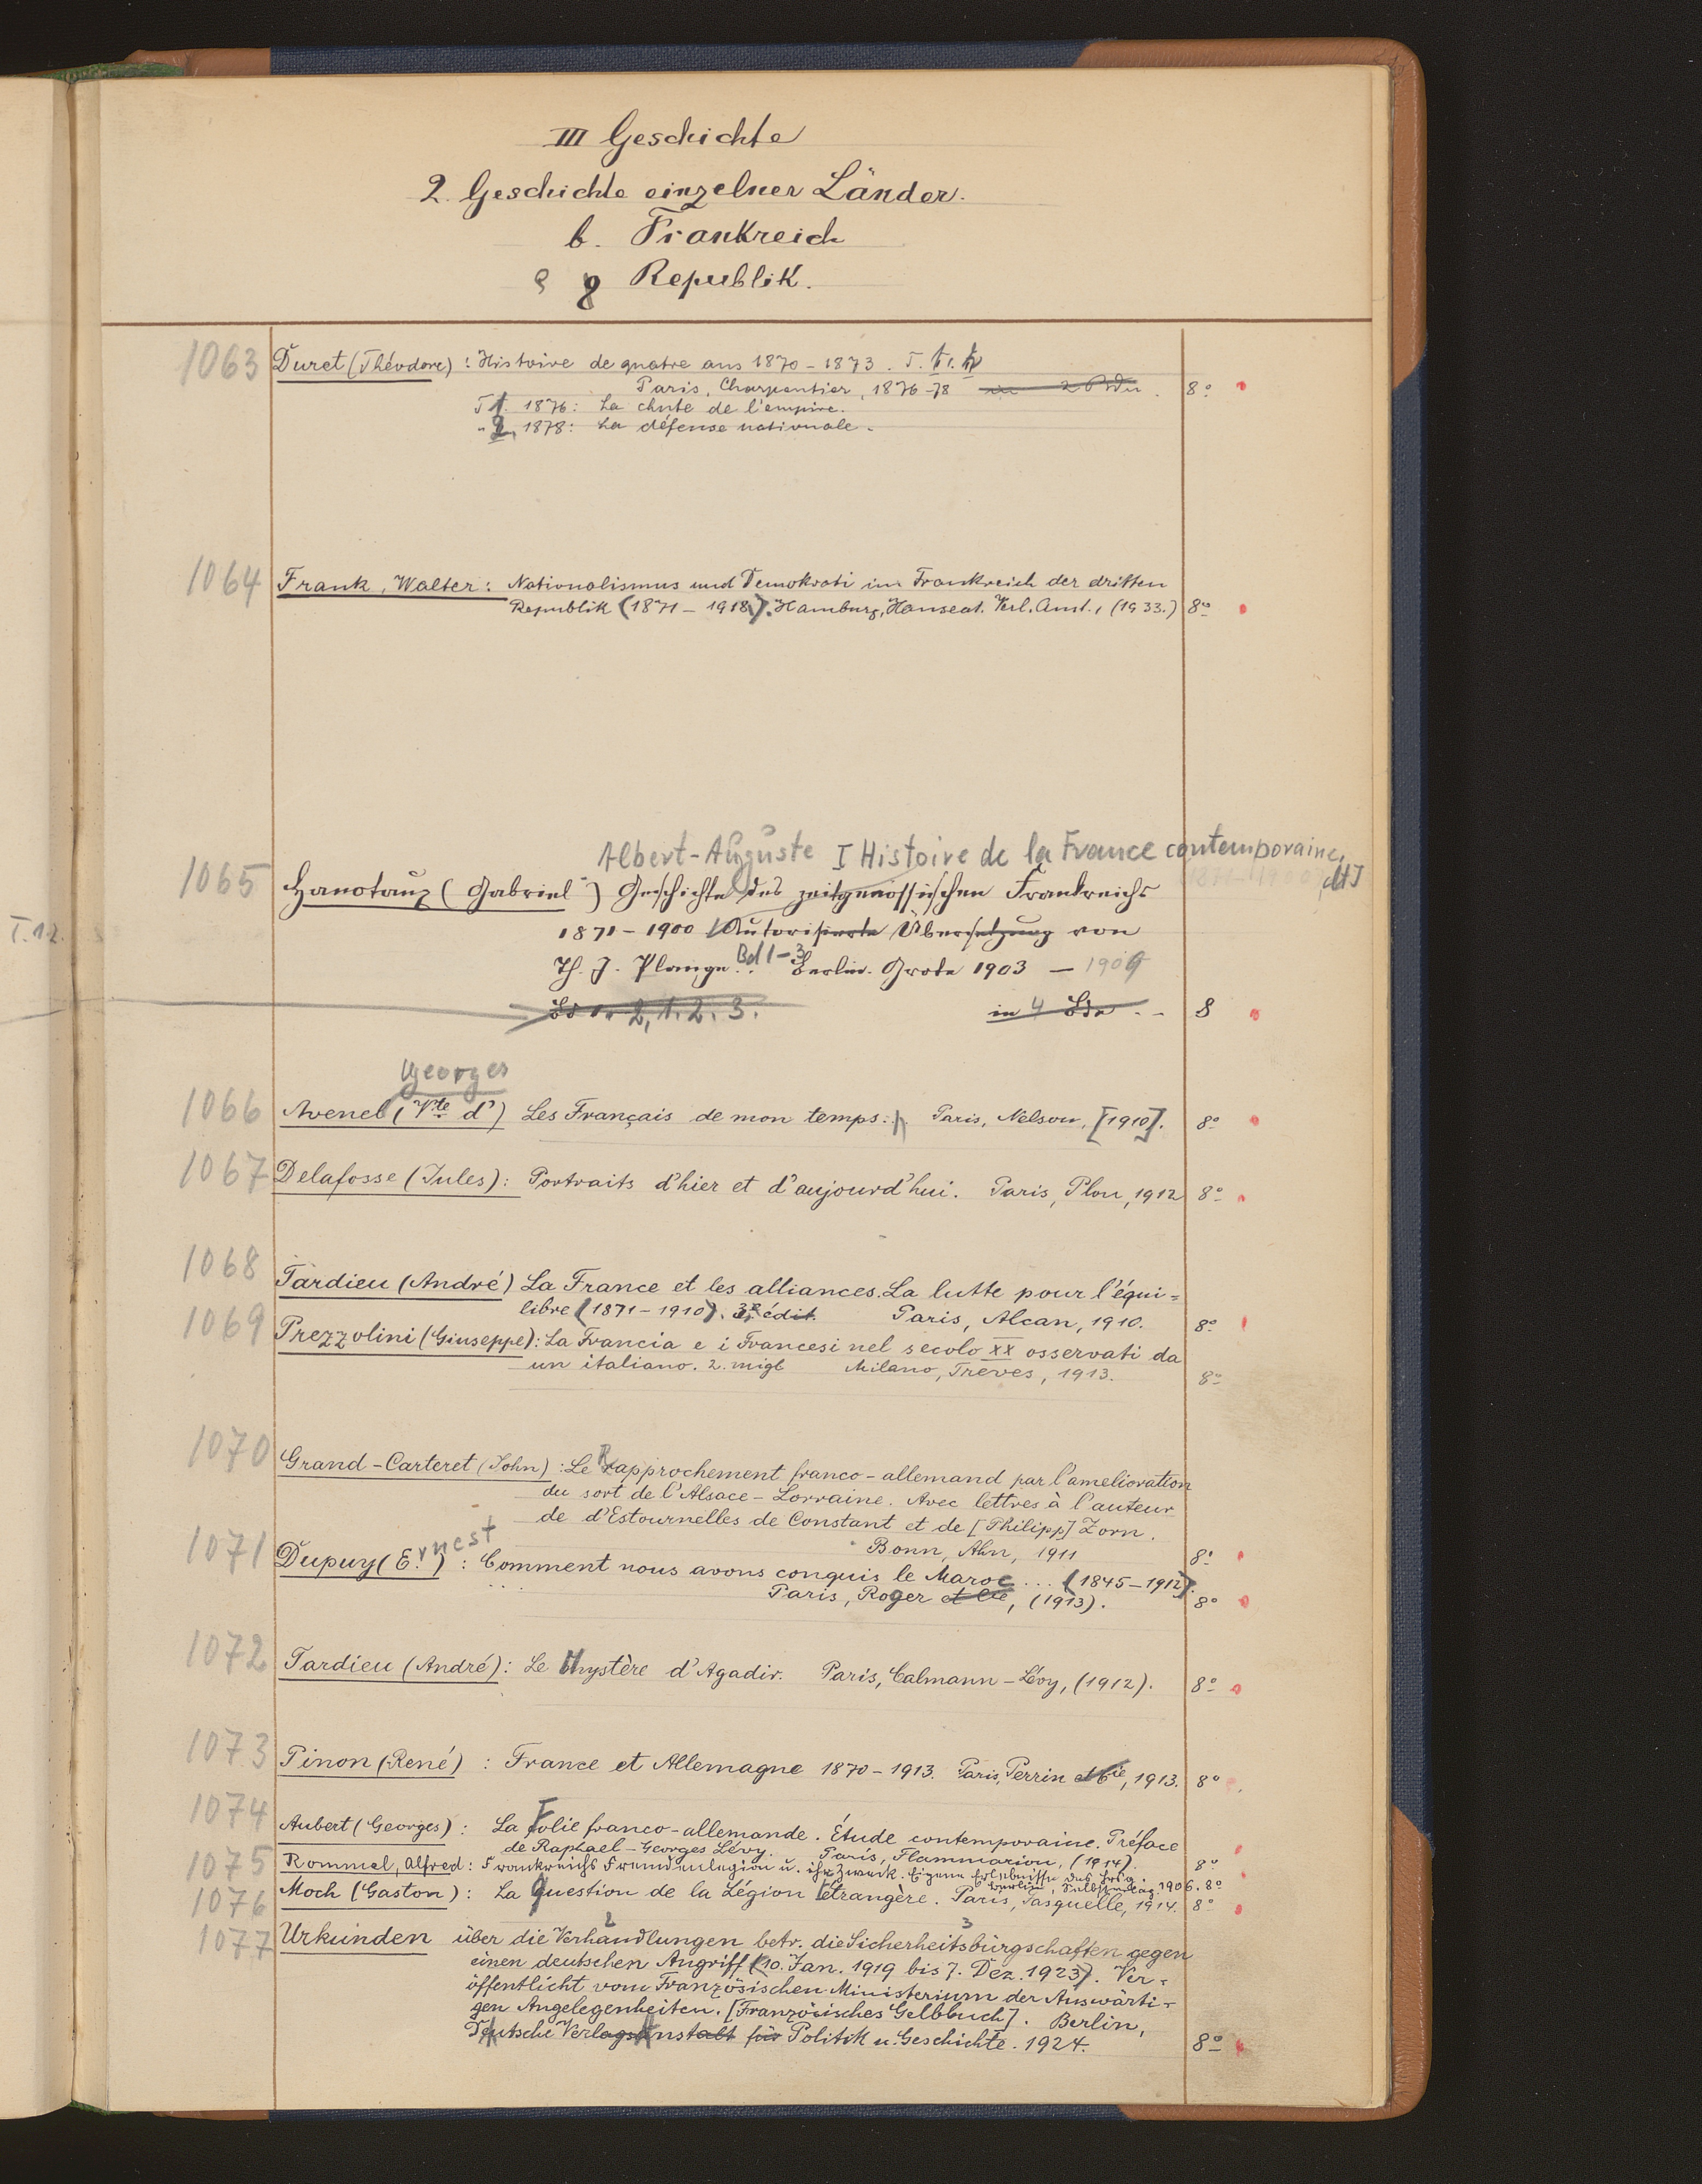 III Geschichte
2. Geschichte einzelner Länder.
b. Frankreich
Republik.
1063 Duret (Théodore): Histoire de quatre ans 1870-1873. T.
Paris, Charpentier, 1876-78 8°
T 1. 1876: La chute de l'empire.
" 2. 1878: La défense nationale.
1064 Frank, Walter: Nationalismus und Demokrati im Frankreich der dritten
Republik (1871-1918). Hamburg, Hanseat. Verl. Anst., (1933.) 8°
Albert-Auguste I Histoire de la France contemporaine,
1065 Hanotaux (Gabriel) Geschichte des zeitgenössischen Frankreichs
1871-1900 dt
T. 1.2.
1871-1900 Autorisierte Übersetzung von
Th. J. Plange. Bd 1-3 Berlin. Grote 1903 - 1909
Bd 1. 2, 1. 2. 3. in 4 Bde 8
Georges
1066 Avenel (Vte d') Les Français de mon temps. Paris, Nelson, [1910]. 8°
1067 Delafosse (Jules): Portraits d'hier et d'aujourd'hui. Paris, Plon, 1912 8°
1068 Tardieu (André) La France et les alliances. La lutte pour l'équi=
libre (1871-1910). 3e édit. Paris, Alcan, 1910. 8°
1069 Prezzolini (Giuseppe): La Francia e i Francesi nel secolo XX osservati da
un italiano. 2. migl Milano, Treves, 1913. 8°
1070 Grand-Carteret (John): Le Rapprochement franco-allemand par l'amelioration
du sort de l'Alsace-Lorraine. Avec lettres à l'auteur
de d'Estournelles de Constant et de [Philipp] Zorn.
Bonn, Ahn, 1911 8°
1071 Dupuy (Ernest): Comment nous avons conquis le Maroc ... (1845-1912).
Paris, Roger et Cie, (1913). 8°
1072 Tardieu (André): Le Mystère d'Agadir. Paris, Calmann-Lévy, (1912). 8°
1073 Pinon (René): France et Allemagne 1870-1913. Paris, Perrin et Cie, 1913. 8°
1074 Aubert (Georges): La Folie franco-allemande. Étude contemporaine. Préface
de Raphael-Georges Lévy. Paris, Flammarion, (1914). 8°
1075 Rommel, Alfred: Frankreichs Fremdenlegion u. ihr Zweck. Eigene Erlebnisse des
Berlin, Selbstverlag. 1906. 8°
1076 Moch (Gaston): La Question de la Légion Étrangère. Paris, Fasquelle, 1914. 8°
1077 Urkunden über die Verhandlungen betr. die Sicherheitsbürgschaften gegen
einen deutschen Angriff (10. Jan. 1919 bis 7. Dez. 1923). Ver-
öffentlicht vom Französischen Ministerium der Auswärti-
gen Angelegenheiten. [Französisches Gelbbuch]. Berlin,
Deutsche Verlagsanstalt für Politik u. Geschichte. 1924. 8°